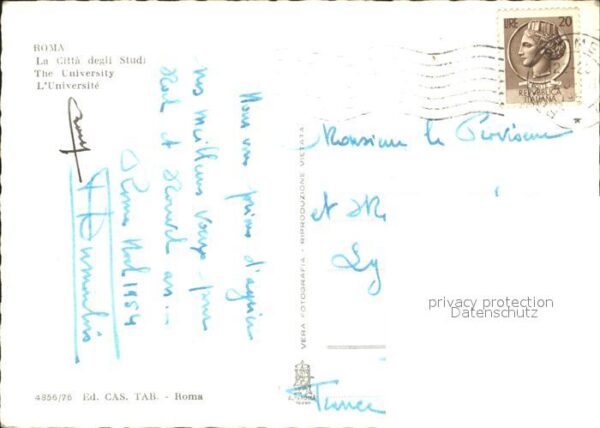 ROMA
La Città degli Studi
The University
L'Université
Nous vous prions d'agréer
nos meilleurs voeux pour
Noël et Nouvel an...
Rome Noël 1954
4856/76 Ed. CAS. TAB. - Roma
VERA FOTOGRAFIA - RIPRODUZIONE VIETATA
LIRE 20
REPUBBLICA
ITALIANA
Monsieur le Proviseur
et M
Ly
France
privacy protection
Datenschutz